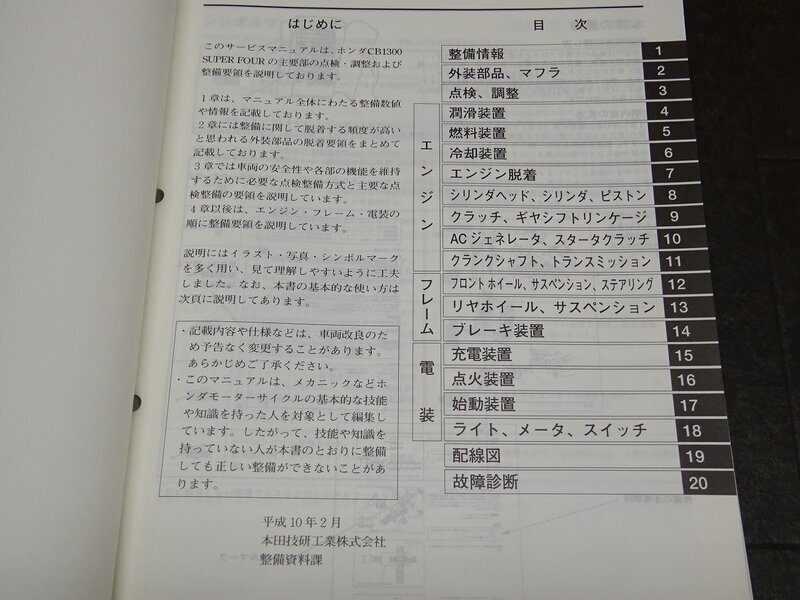 はじめに
このサービスマニュアルは、ホンダCB1300
SUPER FOURの主要部の点検・調整および
整備要領を説明しております。
1章は、マニュアル全体にわたる整備数値
や情報を記載しております。
2章には整備に関して脱着する頻度が高い
と思われる外装部品の脱着要領をまとめて
記載しております。
3章では車両の安全性や各部の機能を維持
するために必要な点検整備方式と主要な点
検整備の要領を説明しています。
4章以後は、エンジン・フレーム・電装の
順に整備要領を説明しています。
説明にはイラスト・写真・シンボルマーク
を多く用い、見て理解しやすいように工夫
しました。なお、本書の基本的な使い方は
次頁に説明してあります。
・記載内容や仕様などは、車両改良のた
め予告なく変更することがあります。
あらかじめご了承ください。
・このマニュアルは、メカニックなどホ
ンダモーターサイクルの基本的な技能
や知識を持った人を対象として編集し
ています。したがって、技能や知識を
持っていない人が本書のとおりに整備
しても正しい整備ができないことがあ
ります。
平成10年2月
本田技研工業株式会社
整備資料課
目 次
整備情報 1
外装部品、マフラ 2
点検、調整 3
エンジン
潤滑装置 4
燃料装置 5
冷却装置 6
エンジン脱着 7
シリンダヘッド、シリンダ、ピストン 8
クラッチ、ギヤシフトリンケージ 9
ACジェネレータ、スタータクラッチ 10
クランクシャフト、トランスミッション 11
フレーム
フロントホイール、サスペンション、ステアリング 12
リヤホイール、サスペンション 13
ブレーキ装置 14
電装
充電装置 15
点火装置 16
始動装置 17
ライト、メータ、スイッチ 18
配線図 19
故障診断 20